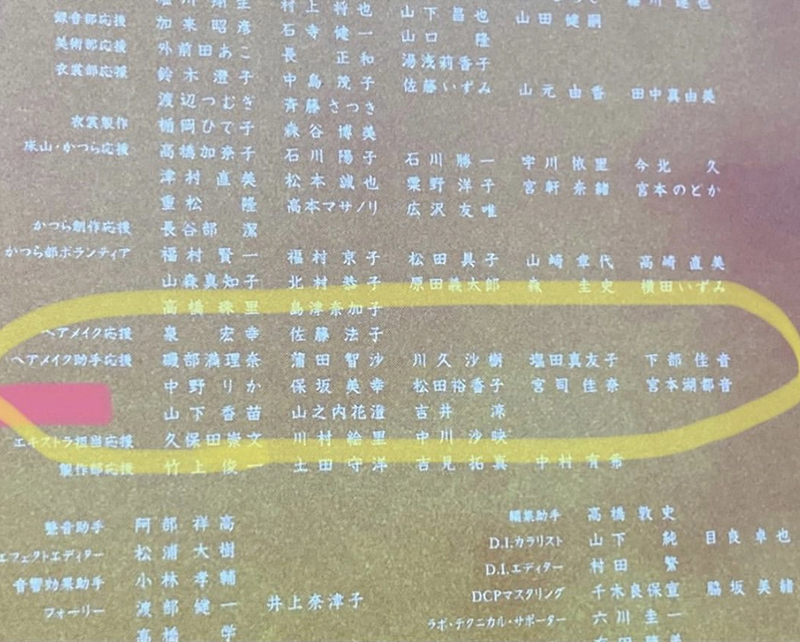 村上将也
録音部応援 加来昭彦 石寺健一 山下昌也 山田健嗣
美術部応援 外前田あこ 長正和 山口隆
衣裳部応援 鈴木澄子 中島茂子 湯浅莉香子
渡辺つむぎ 斉藤さつき 佐藤いずみ 山元由香 田中真由美
衣裳製作 楯岡ひで子 森谷博美
床山・かつら応援 高橋加奈子 石川陽子 石川勝一 宇川依里 今北久
津村直美 松本誠也 粟野洋子 宮軒奈緒 宮本のどか
重松隆 高本マサノリ 広沢友唯
かつら創作応援 長谷部潔
かつら部ボランティア 福村賢一 福村京子 松田具子 山崎章代 高崎直美
山森真知子 北村恭子 原田義太郎 森圭史 横田いずみ
高橋珠里 島津奈加子
ヘアメイク応援 泉宏幸 佐藤法子
ヘアメイク助手応援 磯部満理奈 蒲田智沙 川久沙樹 塩田真友子 下部佳音
中野りか 保坂美幸 松田裕香子 宮司佳奈 宮本湖都音
山下香苗 山之内花澄 吉井涼
エキストラ担当応援 久保田崇文 川村絵里 中川沙映
製作部応援 竹上俊一 土田守洋 吉見拓真 中村有希
整音助手 阿部祥高
エフェクトエディター 松浦大樹
音響効果助手 小林孝輔
フォーリー 渡部健一 井上奈津子
高橋学
編集助手 高橋敦史
D.I.カラリスト 山下純 目良卓也
D.I.エディター 村田繁
DCPマスタリング 千木良保宣 脇坂美緒
ラボ・テクニカル・サポーター 六川圭一